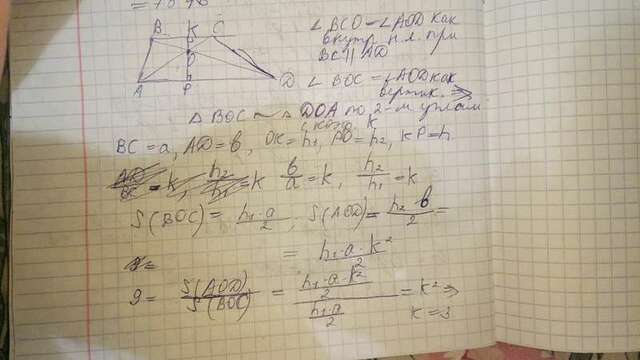 B K C
O
A P D
∠BCO = ∠AOD как
внутр. н.л. при
BC || AD
∠BOC = ∠AOD как
вертик. ⇒
△BOC ~ △DOA по 2-м углам
с коэф. k
BC = a, AD = b, OK = h₁, PO = h₂, KP = h
AD/BC = k, h₂/h₁ = k b/a = k, h₂/h₁ = k
S(BOC) = h₁·a/2, S(AOD) = h₂·b/2 =
= h₁·a·k²/2
9 = S(AOD)/S(BOC) = (h₁·a·k²/2)/(h₁·a/2) = k² ⇒
k = 3